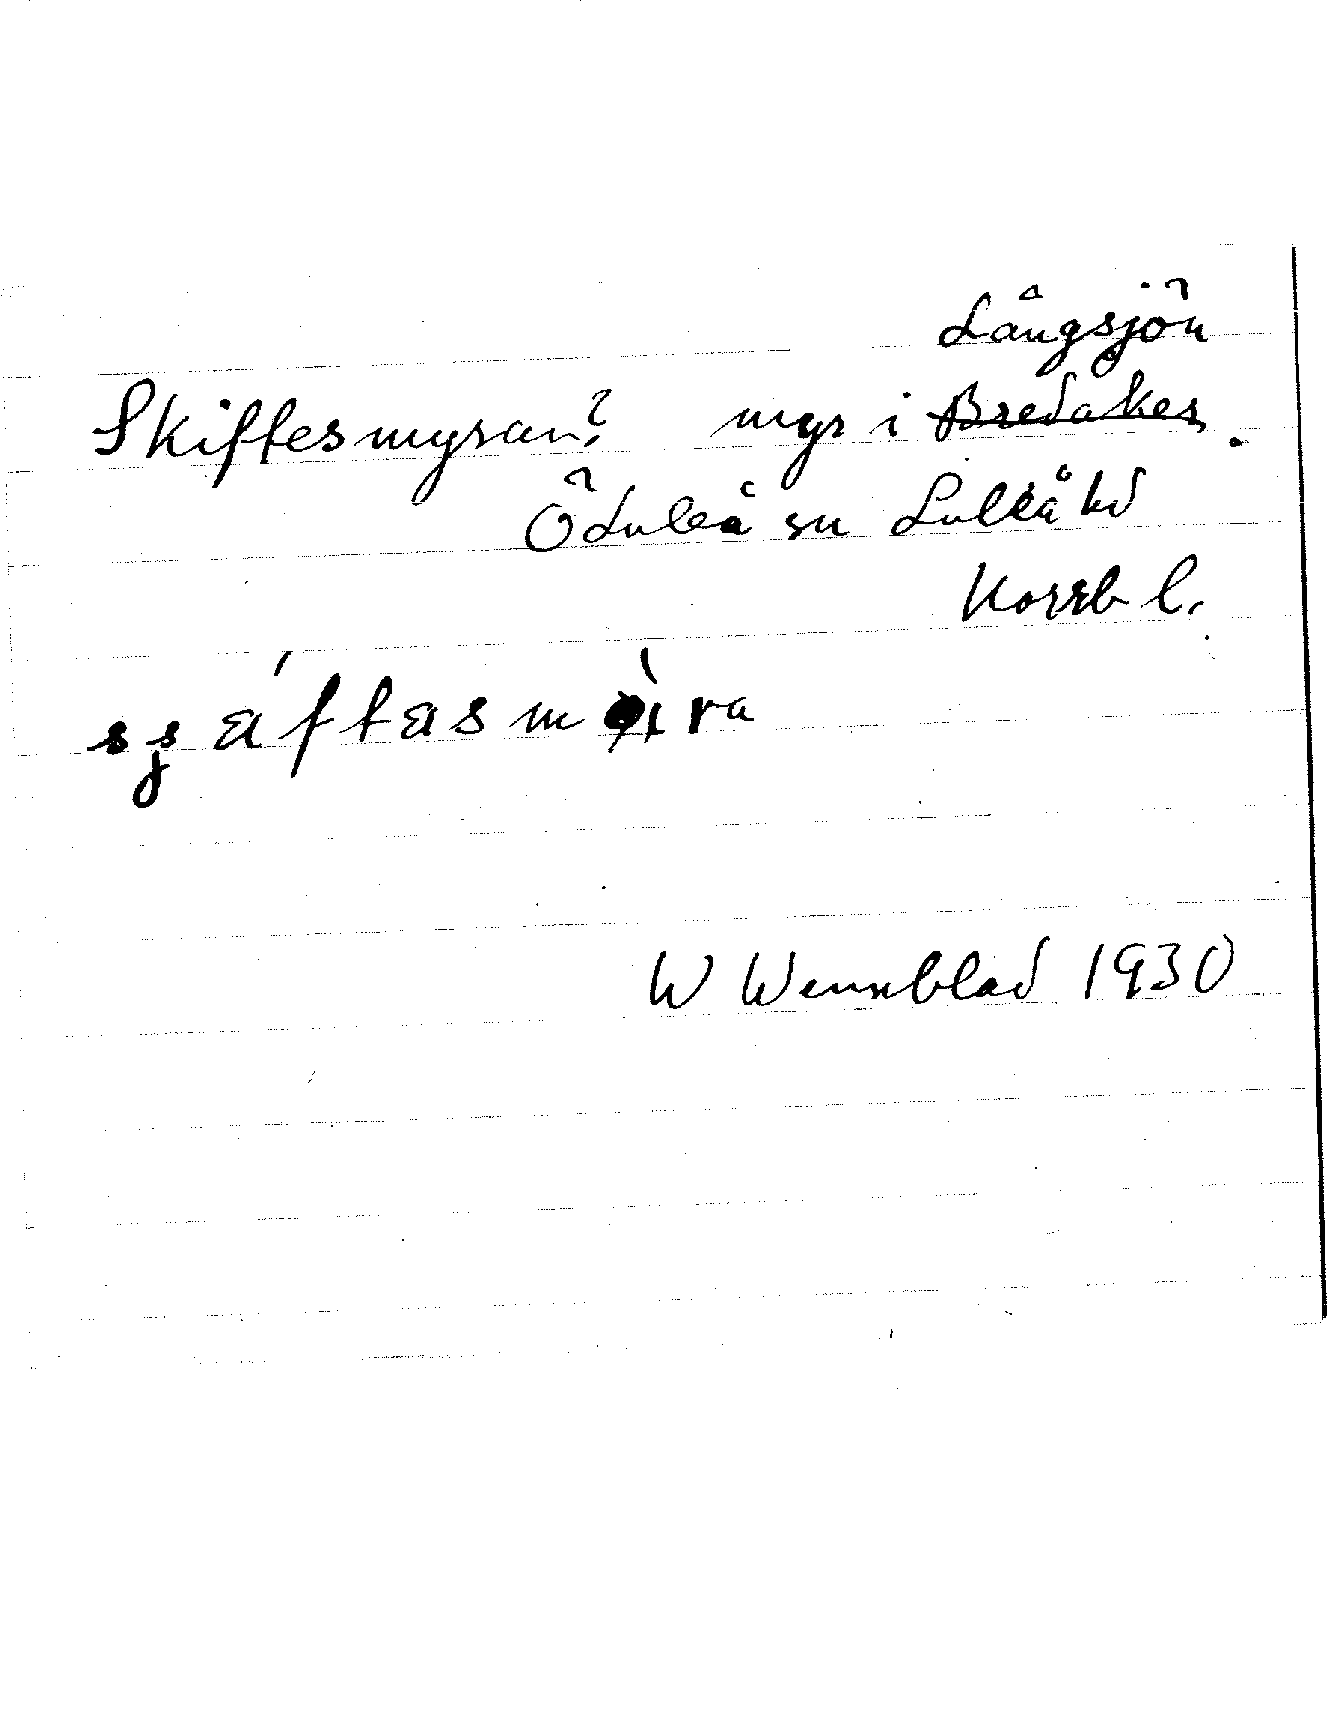 Långsjön
Skiftesmyran? myr i Bredåker.
ÖLuleå sn Luleå hd
Norrb l.
sjáftasmìra
W Wennblad 1930